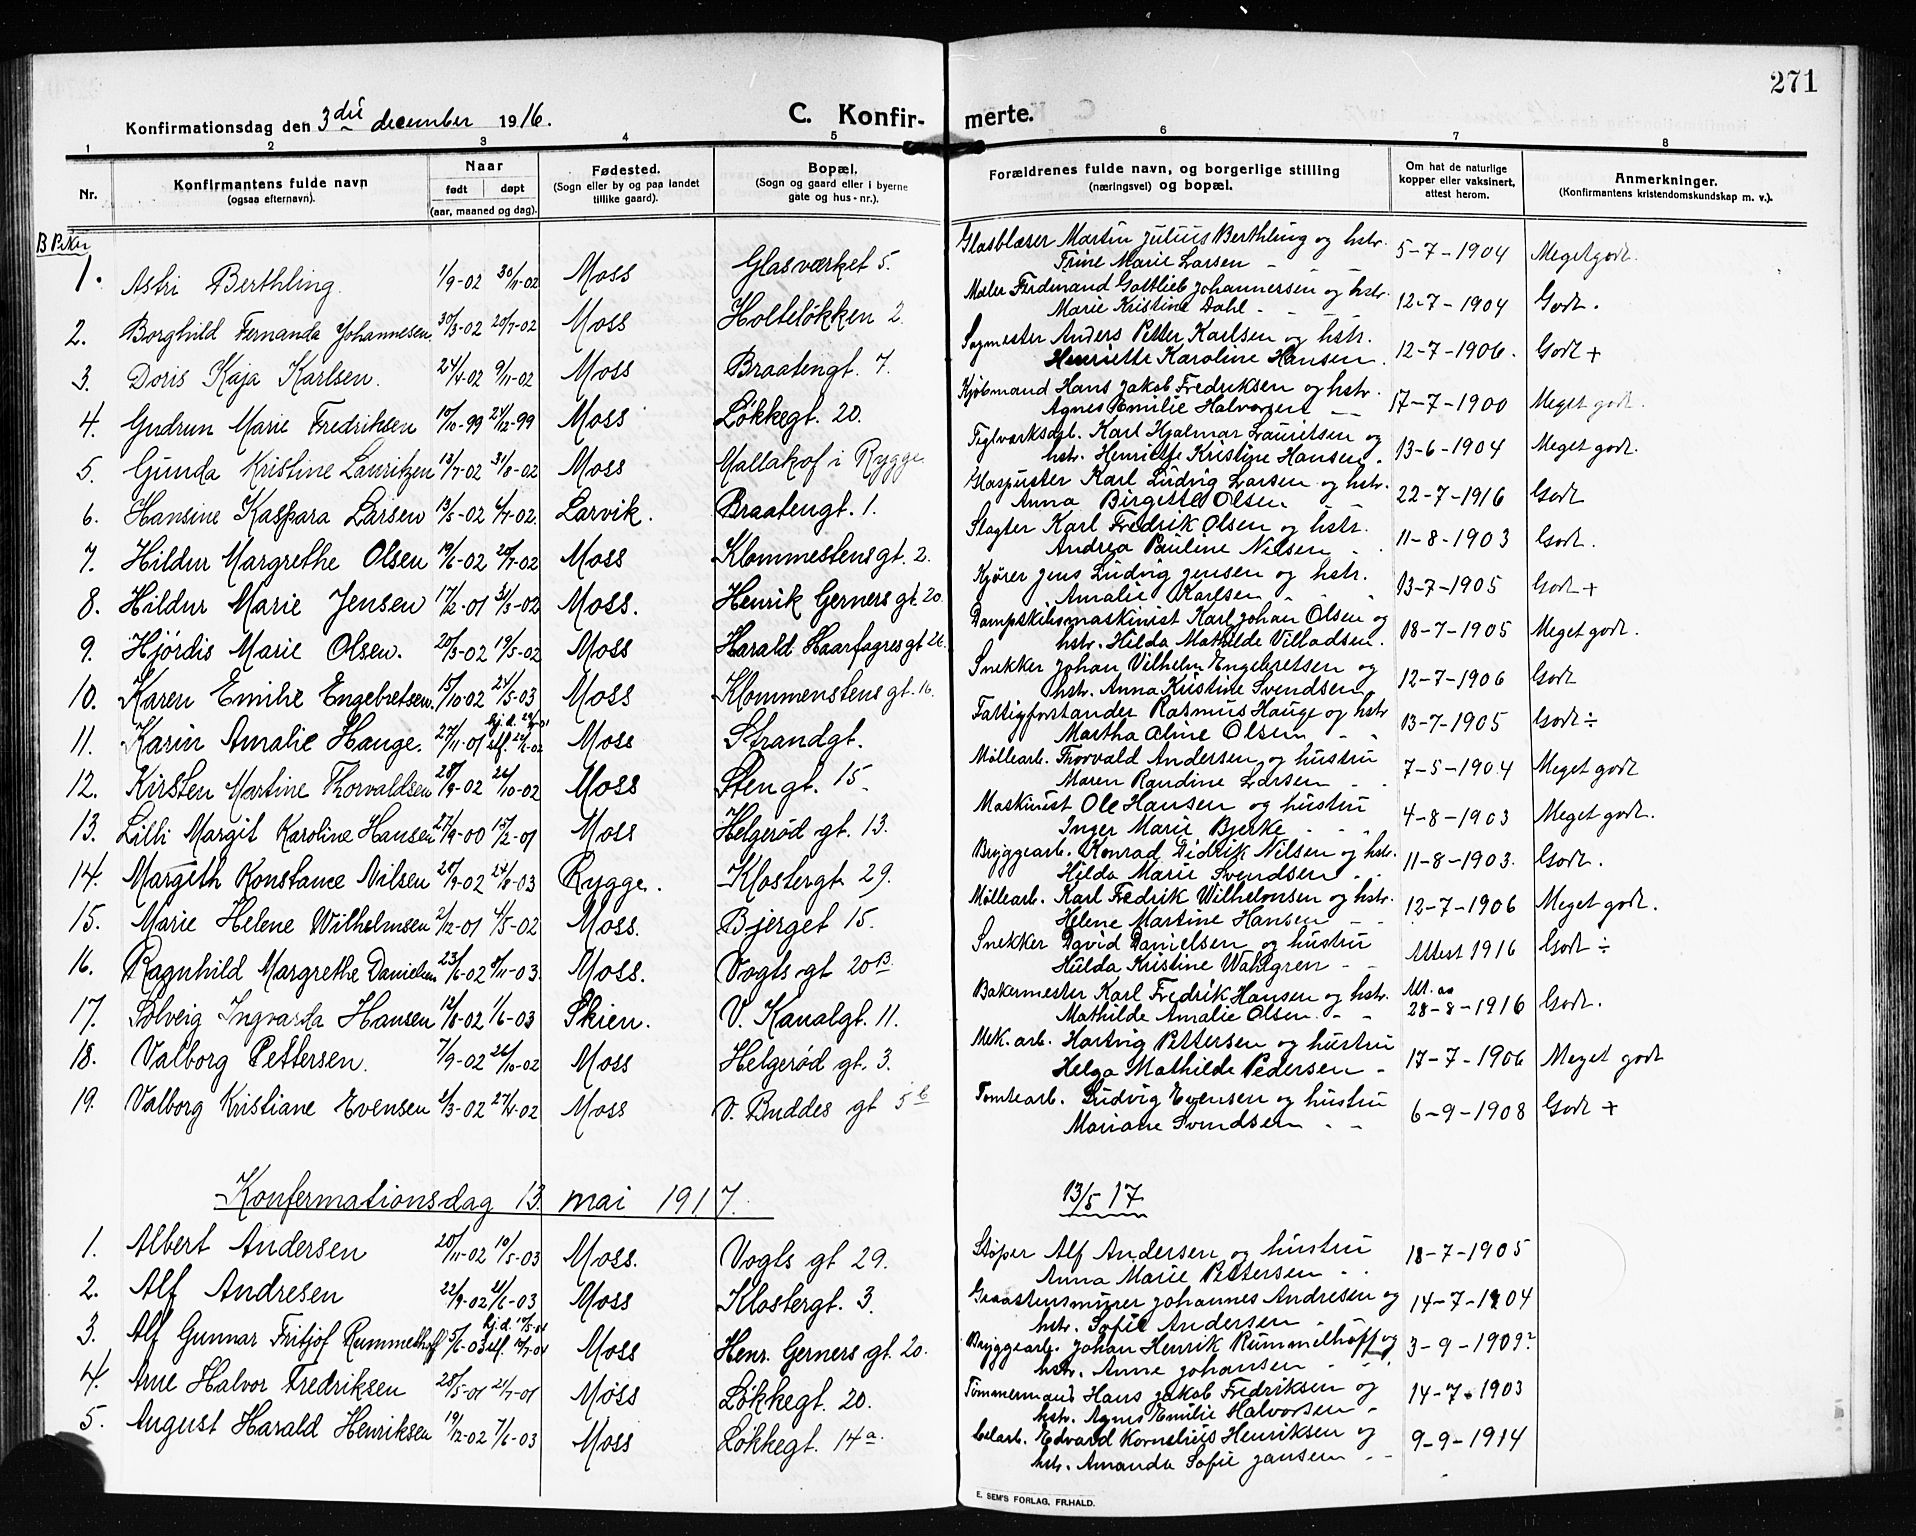 271
Konfirmationsdag den 3die december 1916.
C. Konfir-
merte.
1 2 3 4 5 6 7 8
Nr.
Konfirmantens fulde navn
(ogsaa efternavn).
Naar
født døpt
(aar, maaned og dag).
Fødested.
(Sogn eller by og paa landet
tillike gaard).
Bopæl.
(Sogn og gaard eller i byerne
gate og hus-nr.).
Forældrenes fulde navn, og borgerlige stilling
(næringsvei) og bopæl.
Om hat de naturlige
kopper eller vaksinert,
attest herom.
Anmerkninger.
(Konfirmantens kristendomskundskap m. v.).
B Piker
1. Astri Berthling. 1/9-02 30/11-02 Moss Glasværket 5. Glasblæser Martin Julius Berthling og hstr. 5-7-1904 Meget godt.
Trine Marie Larsen -
2. Borghild Fernanda Johannesen 30/3-02 20/7-02 Moss Holteløkken 2. Maler Ferdinand Gottlieb Johannersen og hstr. 12-7-1904 Godt.
Marie Kristine Dahl - -
3. Doris Kaja Karlsen. 24/4-02 9/11-02 Moss Braatengt. 7. Sagmester Anders Petter Karlsen og hstr. 12-7-1906. Godt +
Henriette Karoline Hansen.
4. Gudrun Marie Fredriksen 10/10-99 24/12-99 Moss Løkkegt. 20. Kjøbmand Hans Jakob Fredriksen og hstr. 17-7-1900 Meget godt.
Agnes Emilie Halvorsen - -
5. Gunda Kristine Lauritzen 13/7-02 31/8-02 Moss Mallakof i Rygge Tiglverksarb. Karl Hjalmar Lauritsen og 13-6-1904 Meget godt.
hstr. Henriette Kristine Hansen.
6. Hansine Kaspara Larsen 13/5-02 6/7-02. Larvik. Braatengt. 1. Glaspuster Karl Ludvig Larsen og hstr. 22-7-1916 Godt
Anna Birgette Olsen.
7. Hildur Margrethe Olsen 19/6-02 20/7-02 Moss Klommestensgt. 2. Slagter Karl Fredrik Olsen og hstr. 11-8-1903 Godt.
Andrea Pauline Nilsen - .
8. Hildur Marie Jensen 17/2-01 31/3-02 Moss. Henrik Gerners gt. 20. Kjører Jens Ludvig Jensen og hstr. 13-7-1905 Godt +
Amalie Karlsen
9. Hjørdis Marie Olsen. 20/3-02 19/5-02 Moss Harald Haarfagres gt 26 Dampskibsmaskinist Karl Johan Olsen og 18-7-1905 Meget godt.
hstr. Hilda Mathilde Villadsen.
10. Karen Emilie Engebretsen. 15/10-02 24/5-03 Moss Klommenstens gt. 16. Snekker Johan Vilhelm Engebretsen og 12-7-1906 Godt
hstr. Anna Kristine Svendsen
11. Karin Amalie Hauge. 27/11-01 Moss Strandgt. Fattigforstander Rasmus Hauge og hstr 13-7-1905 Godt ÷
Martha Aline Olsen - -
12. Kirsten Martine Thorvaldsen 28/9-02 26/10-02 Moss Stengt. 15. Møllearb. Thorvald Andersen og hustru 7-5-1904 Meget godt
Maren Randine Larsen - .
13. Lilli Margit Karoline Hansen 27/9-00 17/2-01 Moss Helgerød gt. 13. Maskinist Ole Hansen og hustru 4-8-1903 Meget godt.
Inger Marie Bjerke - -
14. Margith Konstance Nilsen Rygge. Klostergt. 29. Bryggearb. Konrad Didrik Nilsen og hstr. 11-8-1903. Godt.
Hilda Marie Svendsen . .
15. Marie Helene Wilhelmsen 2/12-01 4/5-02 Moss. Bjerget 15. Møllearb. Karl Fredrik Wilhelmsen og hstr. 12-7-1906 Meget godt.
Helene Martine Hansen -
16. Ragnhild Margrethe Danielsen 23/6-02 8/11-03. Moss. Vogts gt 20B Snekker David Danielsen og hustru Attest 1916 Godt ÷
Hulda Kristine Wahlgren - -
17. Solveig Ingvarda Hansen 12/8-02 1/6-03 Skien. V. Kanalgt. 11. Bakermester Karl Fredrik Hansen og hstr. 28-8-1916 Godt.
Mathilde Amalie Olsen - -
18. Valborg Pettersen. 7/9-02 26/10-02 Moss Helgerød gt. 3. Mek. arb. Hartvig Pettersen og hustru 17-7-1906 Meget godt
Helga Mathilde Pedersen -
19. Valborg Kristiane Evensen 2/3-02 27/4-02 Moss V. Buddes gt 5b Tomtearb. Ludvig Evensen og hustru 6-9-1908 Godt +
Mariane Svendsen - -
Konfermationsdag 13. mai 1917. 13/5 17
1. Albert Andersen 20/11-02 10/5-03 Moss. Vogts gt 29. Støper Alf Andersen og hustru 18-7-1905
Anna Marie Pettersen . .
2. Alf Andresen 22/9-02 21/6-03 Moss Klostergt. 3. Graastensmurer Johannes Andresen og 14-7-1904
hstr. Sofie Andersen .
3. Alf Gunnar Fritjof Rummelhoff 5/6-03 Moss Henr. Gerners gt. 20. Bryggearb. Johan Henrik Rummelhoff og 3-9-1909?
hstr. Anne Johansen -
4. Arne Halvor Fredriksen 28/5-01 21/7-01 Moss Løkkegt. 20. Tømmermand Hans Jakob Fredriksen og 14-7-1903
hstr. Agnes Emilie Halvorsen -
5. August Harald Henriksen 19/12-02 7/6-03 Moss Løkkegt. 14a. Edvard Kornelius Henriksen og 9-9-1914
hstr. Amanda Sofie Jansen - -
E. SEM'S FORLAG, FR.HALD.